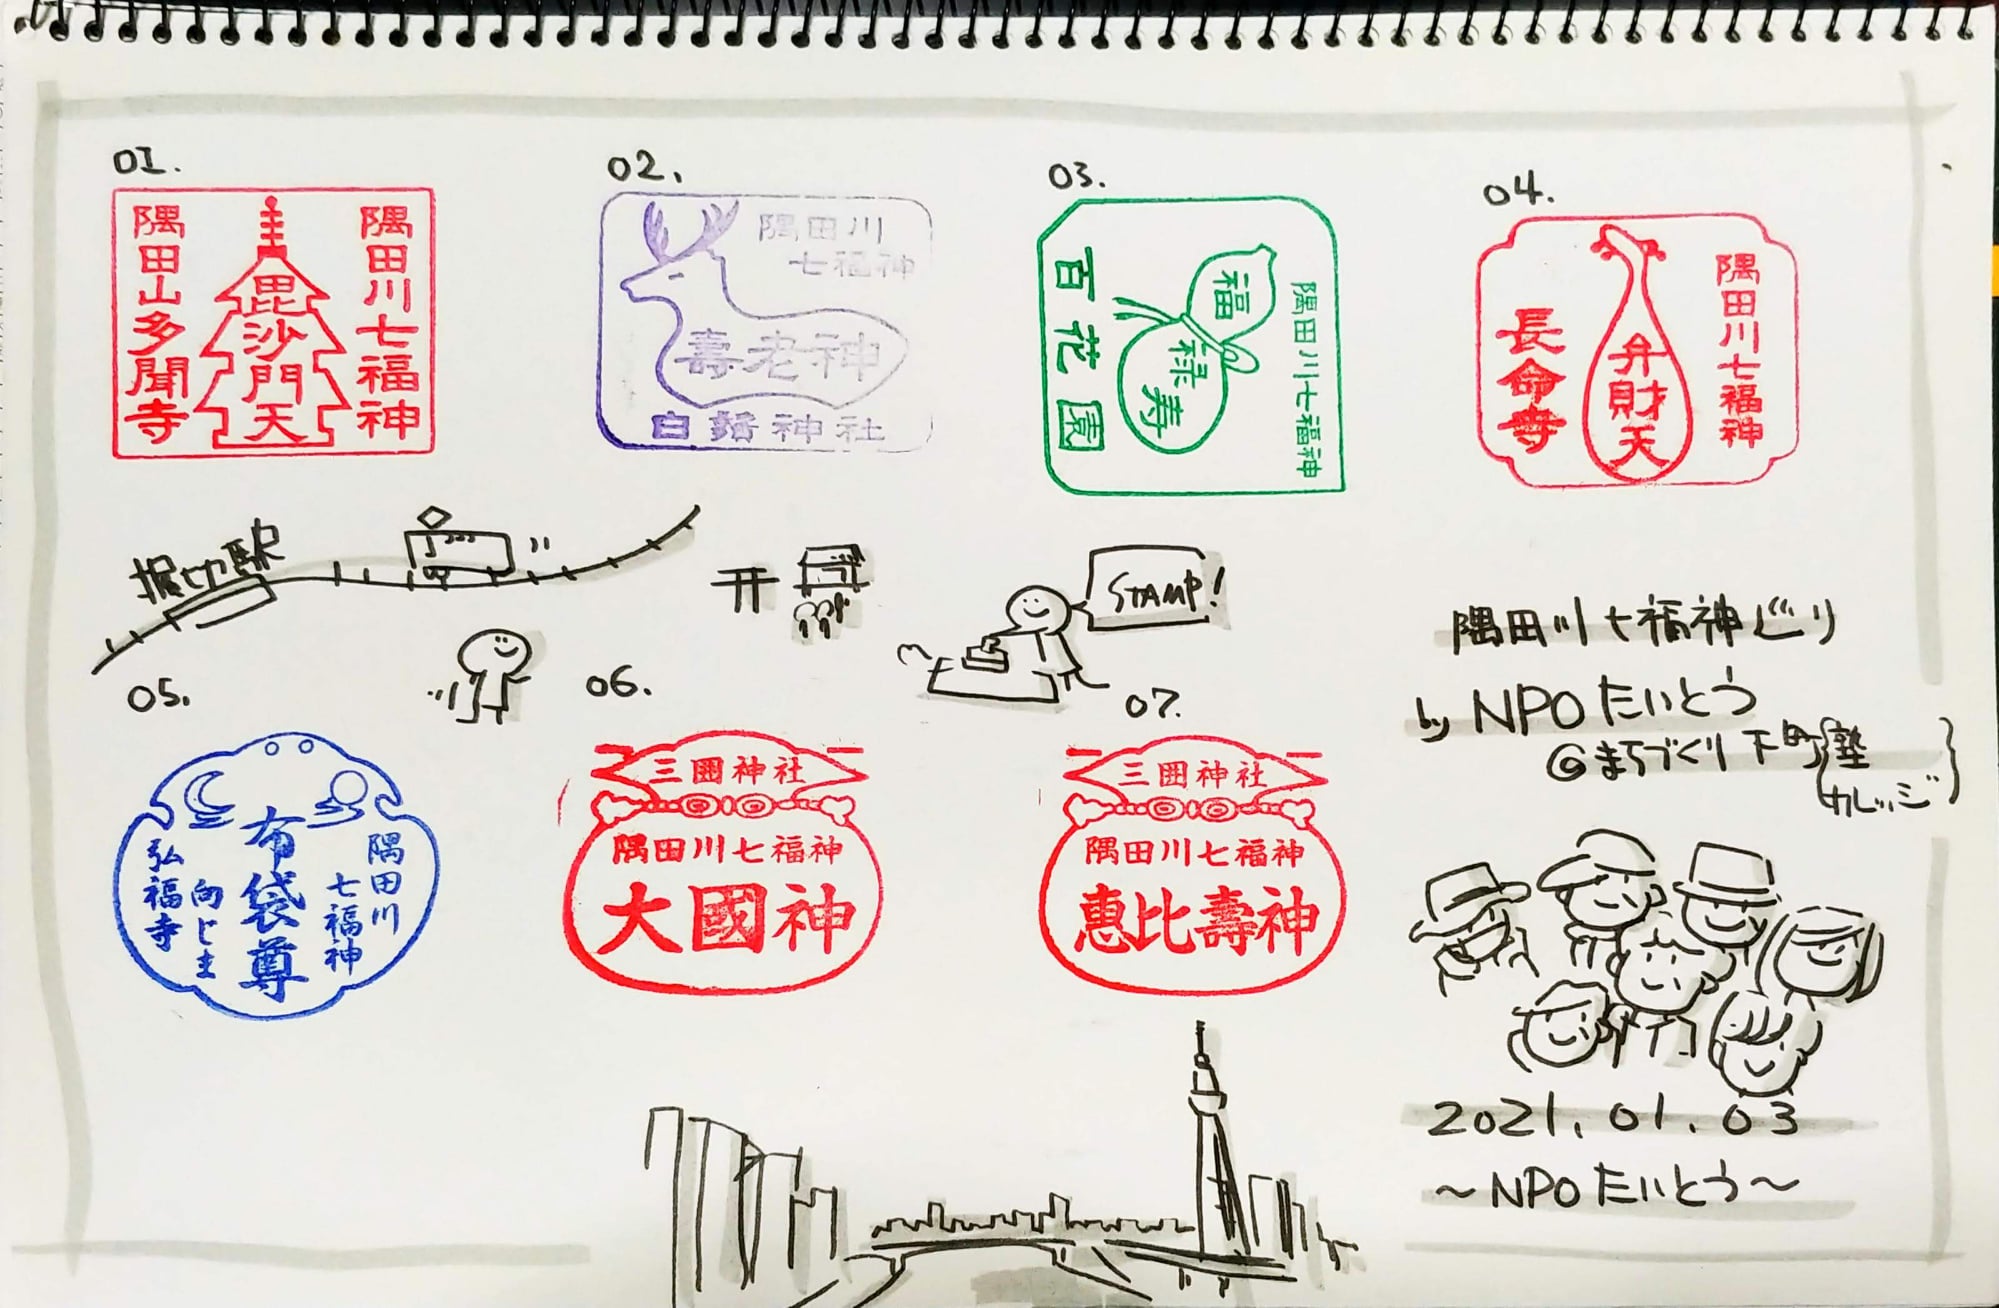 01.
隅田川七福神
毘沙門天
隅田山多聞寺
02.
隅田川
七福神
壽老神
白鬚神社
03.
隅田川七福神
福
禄寿
百花園
04.
隅田川七福神
弁財天
長命寺
堀切駅
STAMP!
05.
隅田川
七福神
布袋尊
向じま
弘福寺
06.
三囲神社
隅田川七福神
大國神
07.
三囲神社
隅田川七福神
恵比壽神
隅田川七福神巡り
by NPOたいとう
@まちづくり下町{塾
カレッジ}
2021.01.03
～NPOたいとう～